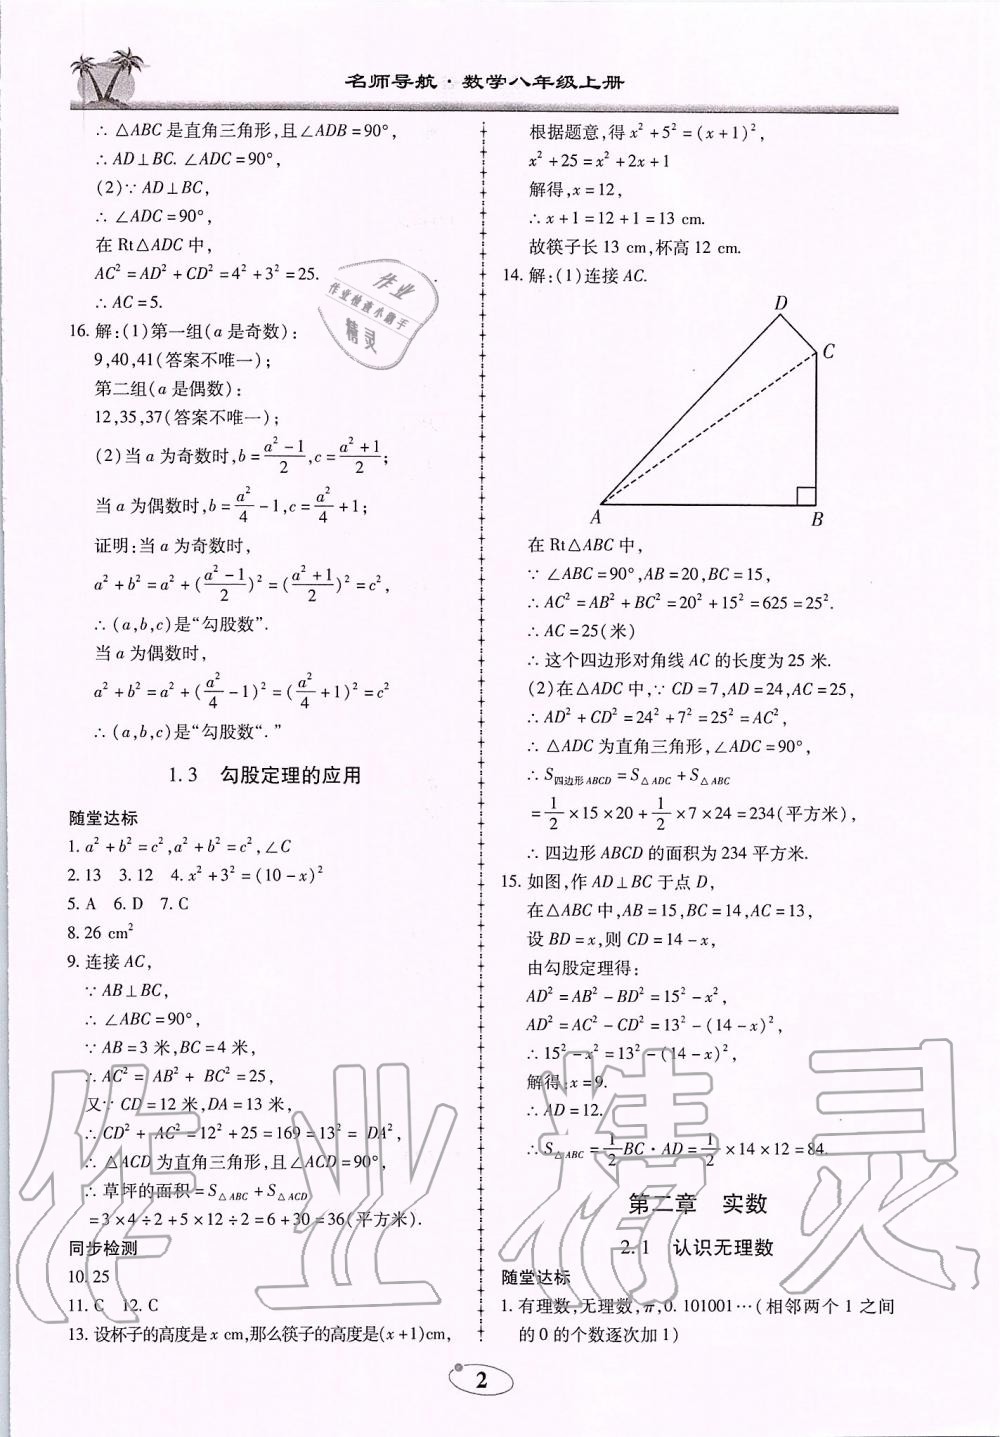 名师导航·数学八年级上册
∴ △ABC是直角三角形,且∠ADB=90°,
∴ AD⊥BC. ∠ADC=90°,
(2)∵ AD⊥BC,
∴ ∠ADC=90°,
在Rt△ADC中,
AC²=AD²+CD²=4²+3²=25.
∴ AC=5.
16. 解:(1)第一组(a是奇数):
9,40,41(答案不唯一);
第二组(a是偶数):
12,35,37(答案不唯一);
(2)当a为奇数时,b=(a²-1)/2,c=(a²+1)/2;
当a为偶数时,b=a²/4-1,c=a²/4+1;
证明:当a为奇数时,
a²+b²=a²+((a²-1)/2)²=((a²+1)/2)²=c²,
∴ (a,b,c)是“勾股数”.
当a为偶数时,
a²+b²=a²+(a²/4-1)²=(a²/4+1)²=c²
∴ (a,b,c)是“勾股数“.”
1.3 勾股定理的应用
随堂达标
1. a²+b²=c²,a²+b²=c²,∠C
2. 13 3. 12 4. x²+3²=(10-x)²
5. A 6. D 7. C
8. 26 cm²
9. 连接AC,
∵ AB⊥BC,
∴ ∠ABC=90°,
∵ AB=3米,BC=4米,
∴ AC²=AB²+BC²=25,
又∵ CD=12米,DA=13米,
∴ CD²+AC²=12²+25=169=13²=DA²,
∴ △ACD为直角三角形,且∠ACD=90°,
∴ 草坪的面积=S△ABC+S△ACD
=3×4÷2+5×12÷2=6+30=36(平方米).
同步检测
10. 25
11. C 12. C
13. 设杯子的高度是x cm,那么筷子的高度是(x+1)cm,
根据题意,得x²+5²=(x+1)²,
x²+25=x²+2x+1
解得,x=12,
∴ x+1=12+1=13 cm.
故筷子长13 cm,杯高12 cm.
14. 解:(1)连接AC.
D
C
A
B
在Rt△ABC中,
∵ ∠ABC=90°,AB=20,BC=15,
∴ AC²=AB²+BC²=20²+15²=625=25².
∴ AC=25(米)
∴ 这个四边形对角线AC的长度为25米.
(2)在△ADC中,∵ CD=7,AD=24,AC=25,
∴ AD²+CD²=24²+7²=25²=AC²,
∴ △ADC为直角三角形,∠ADC=90°,
∴ S四边形ABCD=S△ADC+S△ABC
=1/2×15×20+1/2×7×24=234(平方米),
∴ 四边形ABCD的面积为234平方米.
15. 如图,作AD⊥BC于点D,
在△ABC中,AB=15,BC=14,AC=13,
设BD=x,则CD=14-x,
由勾股定理得:
AD²=AB²-BD²=15²-x²,
AD²=AC²-CD²=13²-(14-x)²,
∴ 15²-x²=13²-(14-x)²,
解得:x=9.
∴ AD=12.
∴ S△ABC=1/2BC·AD=1/2×14×12=84.
第二章 实数
2.1 认识无理数
随堂达标
1. 有理数,无理数,π,0.101001…(相邻两个1之间
的0的个数逐次加1)
2
作业
作业检查小帮手
精灵
作业精灵